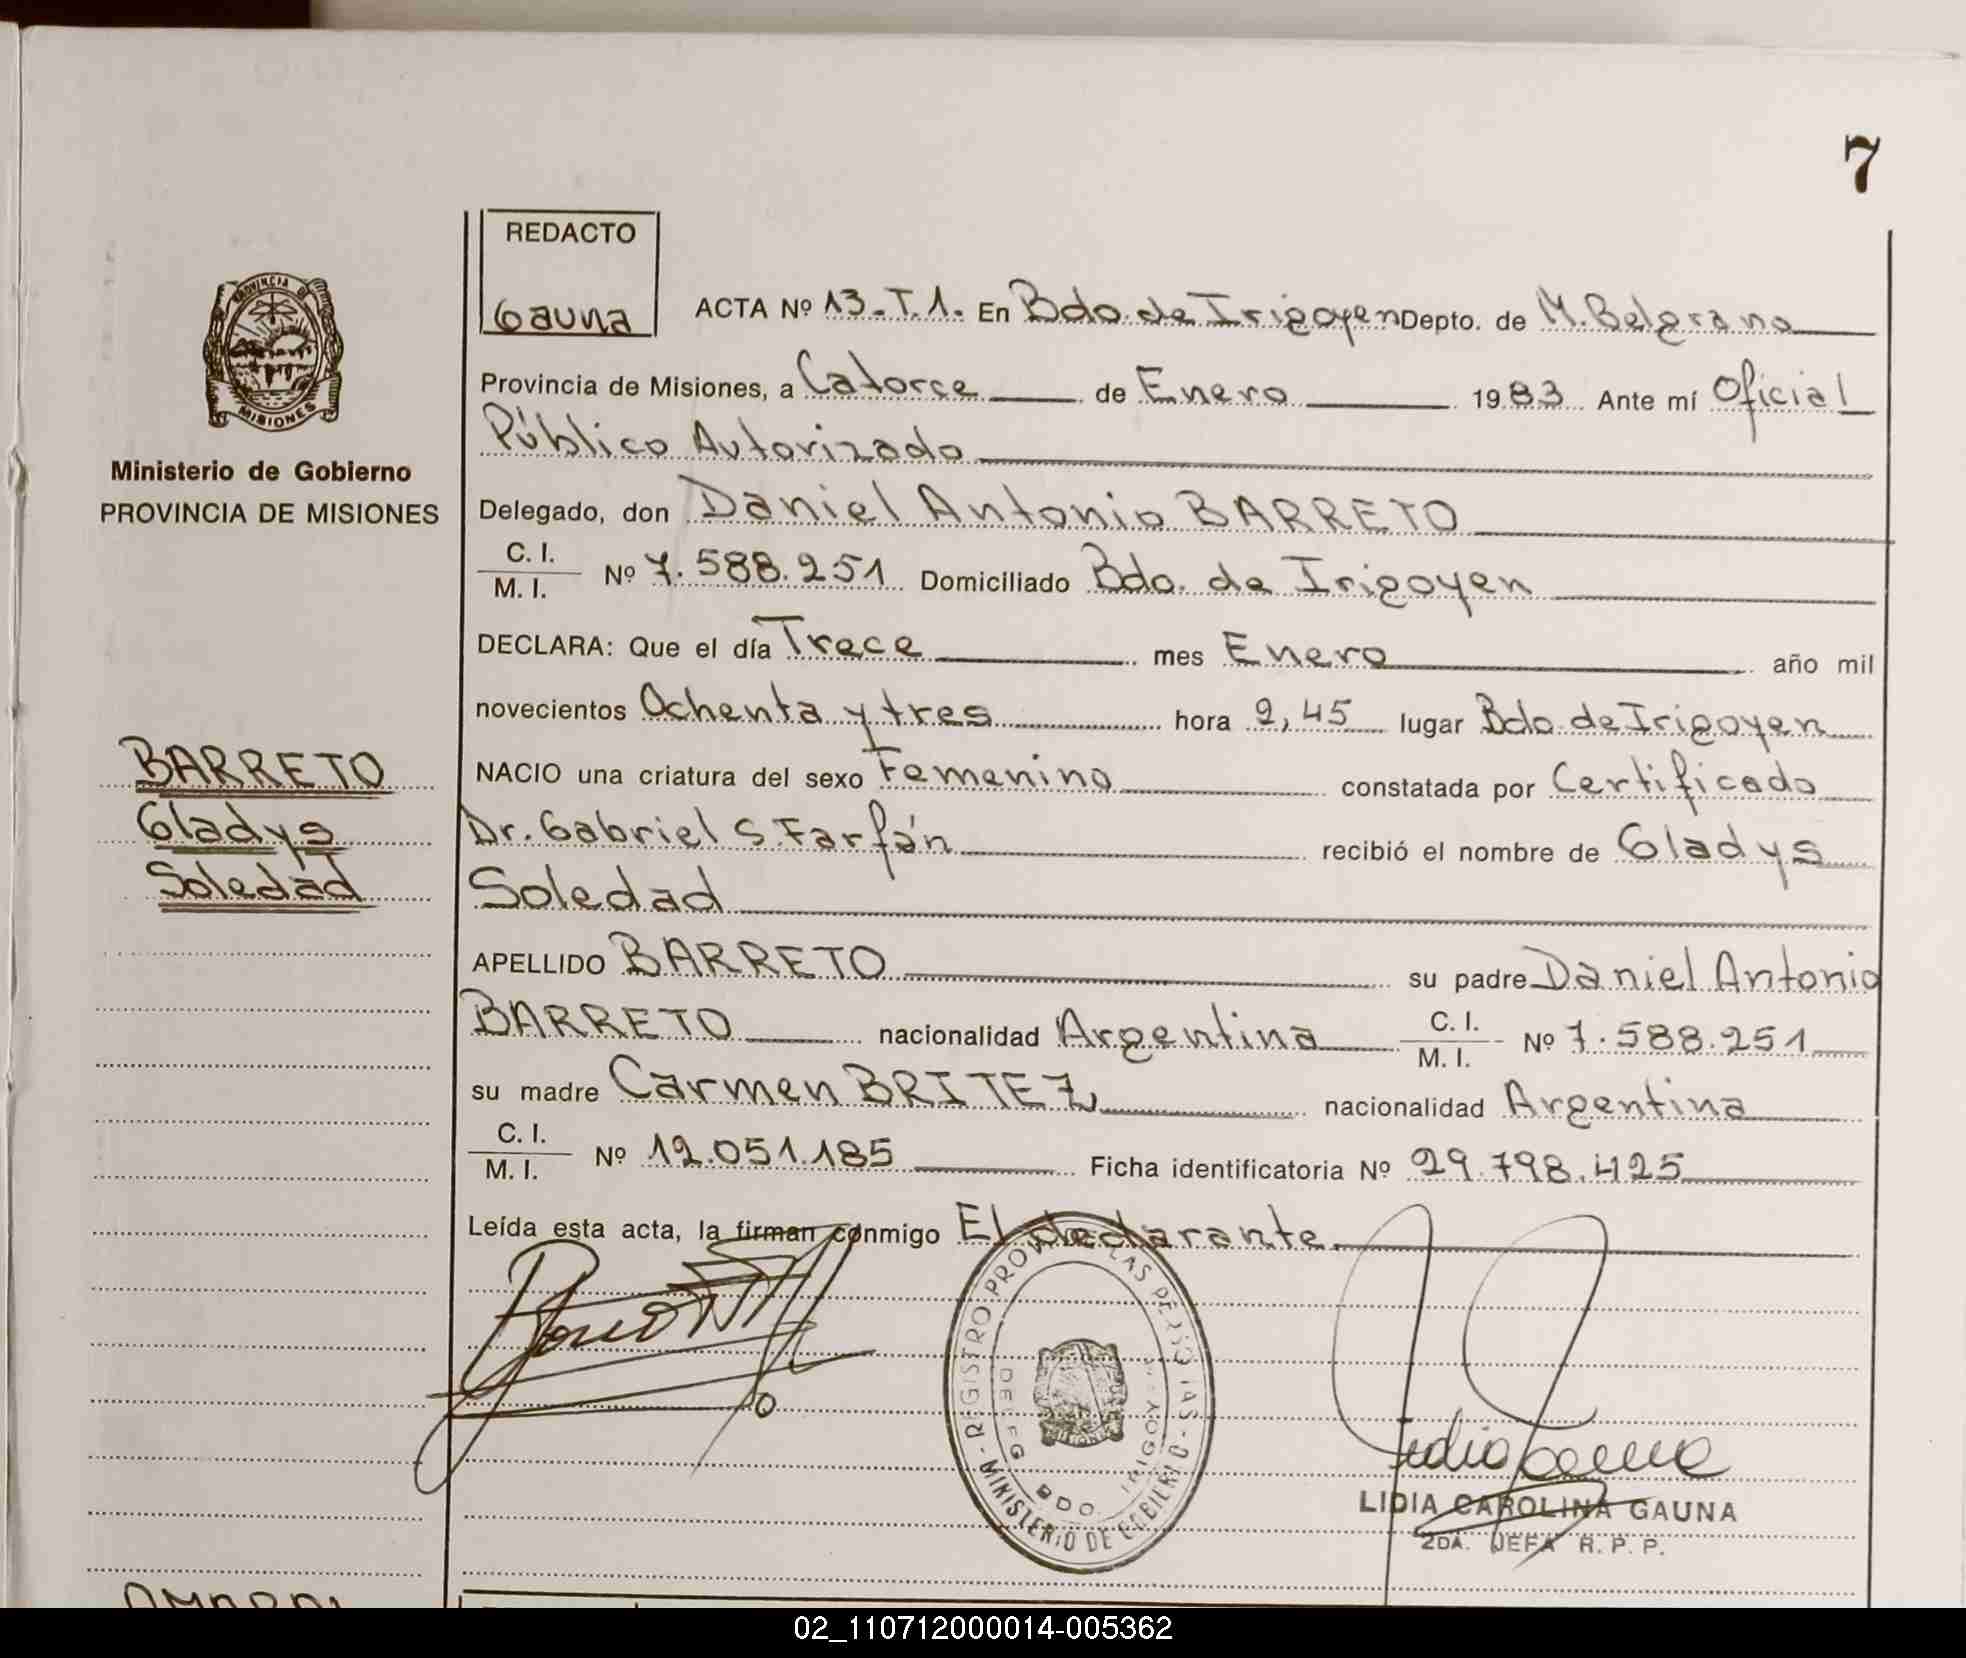 7
REDACTO
Gauna
PROVINCIA DE
MISIONES
Ministerio de Gobierno
PROVINCIA DE MISIONES
ACTA Nº 13-T.1. En Bdo. de Irigoyen Depto. de M. Belgrano
Provincia de Misiones, a Catorce de Enero 1983 Ante mí Oficial
Público Autorizado
Delegado, don Daniel Antonio BARRETO
C. I.
M. I. Nº 7.588.251 Domiciliado Bdo. de Irigoyen
DECLARA: Que el día Trece mes Enero año mil
novecientos Ochenta y tres hora 2,45 lugar Bdo. de Irigoyen
BARRETO
Gladys
Soledad
NACIO una criatura del sexo Femenino constatada por Certificado
Dr. Gabriel S. Farfán recibió el nombre de Gladys
Soledad
APELLIDO BARRETO su padre Daniel Antonio
BARRETO nacionalidad Argentina C. I. M. I. Nº 7.588.251
su madre Carmen BRITEZ nacionalidad Argentina
C. I.
M. I. Nº 12.051.185 Ficha identificatoria Nº 29.798.425
Leída esta acta, la firman conmigo El declarante.
REGISTRO PROV LAS PERSONAS - MINISTERIO DE GOBIERNO
DELEG BDO IRIGOY
Lidia Gauna
LIDIA CAROLINA GAUNA
2DA. JEFA R. P. P.
02_110712000014-005362